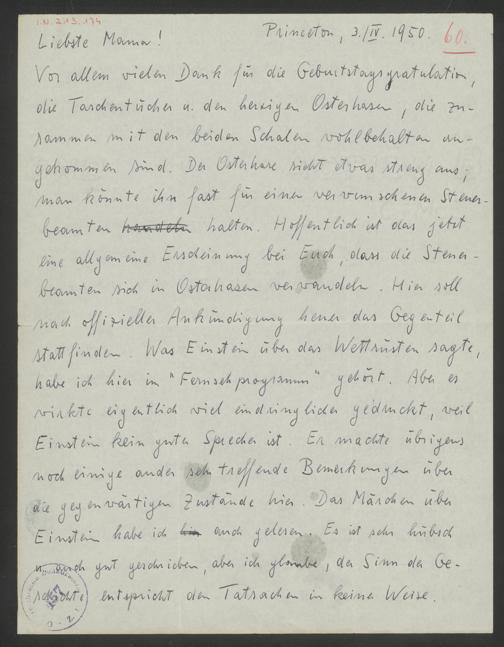 I.N. 213.174
Princeton, 3./IV. 1950. 60.
Liebste Mama!
Vor allem vielen Dank für die Geburtstagsgratulation,
die Taschentücher u. den herzigen Osterhasen, die zu-
sammen mit den beiden Schalen wohlbehalten an-
gekommen sind. Der Osterhase sieht etwas streng aus;
man könnte ihn fast für einen verwunschenen Steuer-
beamten handeln halten. Hoffentlich ist das jetzt
eine allgemeine Erscheinung bei Euch, dass die Steuer-
beamten sich in Osterhasen verwandeln. Hier soll
nach offizieller Ankündigung heuer das Gegenteil
stattfinden. Was Einstein über das Wettrüsten sagte,
habe ich hier im "Fernsehprogramm" gehört. Aber es
wirkte eigentlich viel eindringlicher gedruckt, weil
Einstein kein guter Sprecher ist. Er machte übrigens
noch einige andere sehr treffende Bemerkungen über
die gegenwärtigen Zustände hier. Das Märchen über
Einstein habe ich auch gelesen. Es ist sehr hübsch
u. auch gut geschrieben, aber ich glaube, der Sinn der Ge-
schichte entspricht den Tatsachen in keiner Weise.